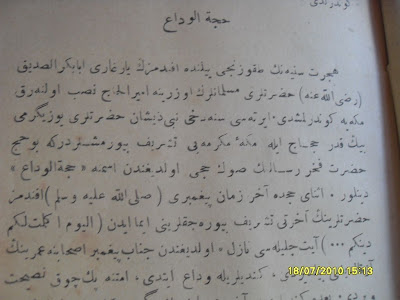 كوندرلدى
حجة الوداع
هجرت سنيه نك طقوزنجى ييلنده افندمزك يار غارى ابابكر الصديق
(رضى الله عنه) حضرتلرى مسلمانلرك اوزرينه امير الحاج نصب اولنه رق
مكه يه كوندرلمشدى. ايرته سى سنه دخى نبى ذيشان حضرتلرى يوز يكرمى
بيك قدر حجاج ايله مكه مكرمه يى تشريف بيورمشلردركه بو حج
حضرت فخر رسالتك صوك حجى اولديغندن اسمنه «حجة الوداع»
دينلور. اثناى حجده آخر زمان پيغمبرى (صلى الله عليه وسلم) افندمز
حضرتلرينك آخرتى تشريف بيوره جقلرينى ايما ايدن (اليوم اكملت لكم
دينكم ...) آيت جليله سى نازل اولديغندن جناب پيغمبر اصحابنه عمرينك
كنديلريله وداع ايتدى، امتنه پك چوق نصيحت
18/07/2010 15:13